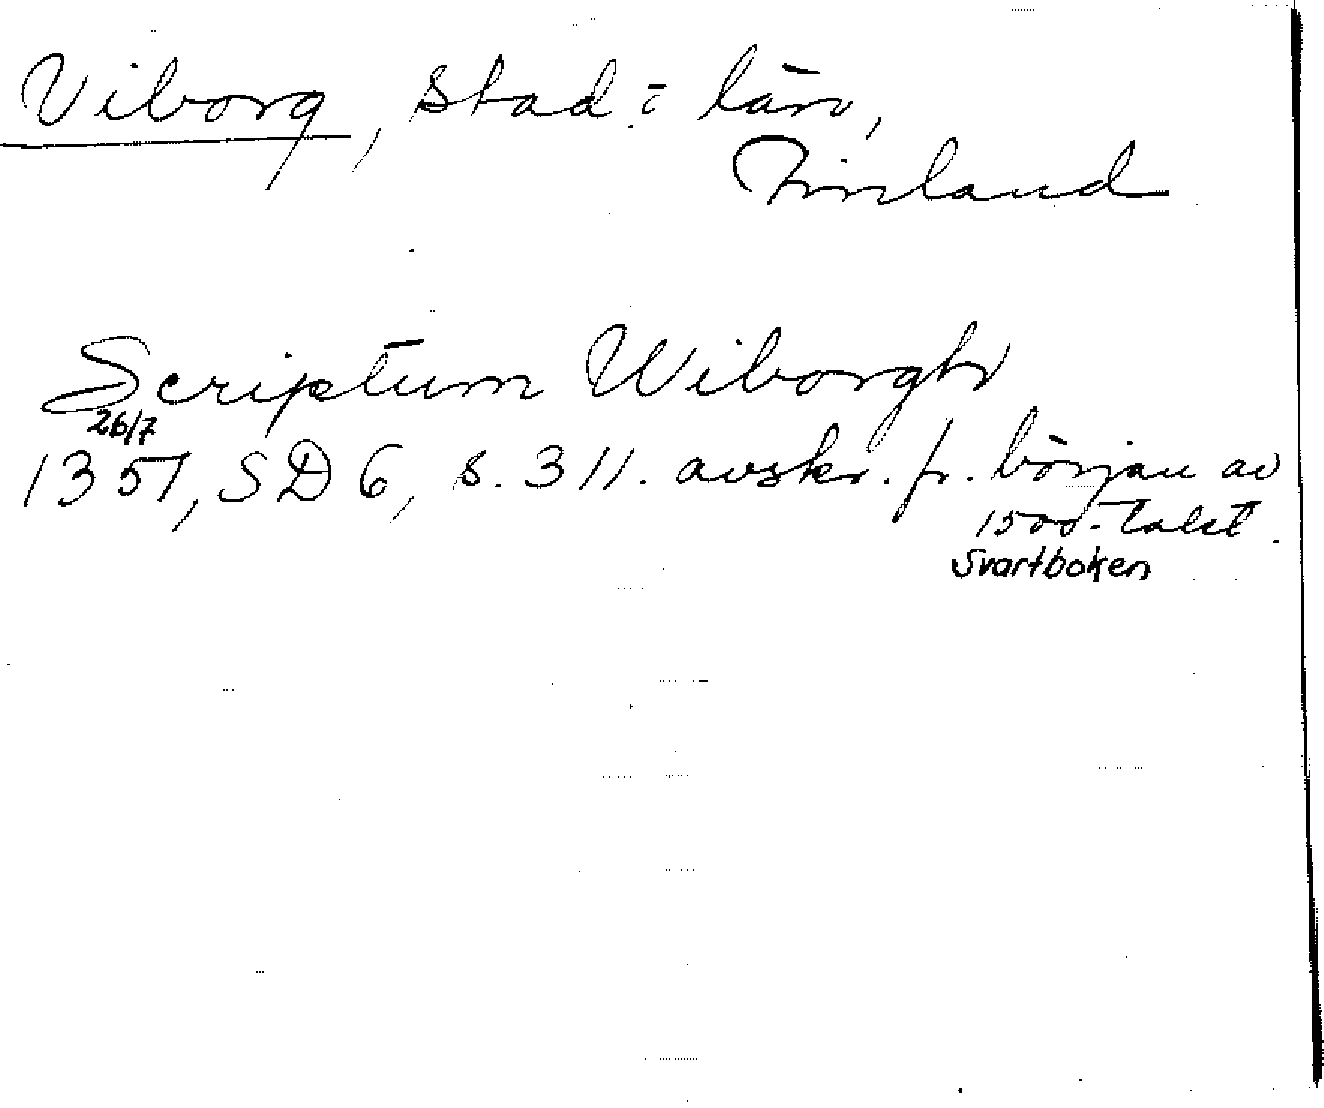 Viborg, stad i län,
Finland
Scriptum Wiborgh
26/7
1351, SD 6, s. 311. avskr. fr. början av
1500-talet.
Svartboken